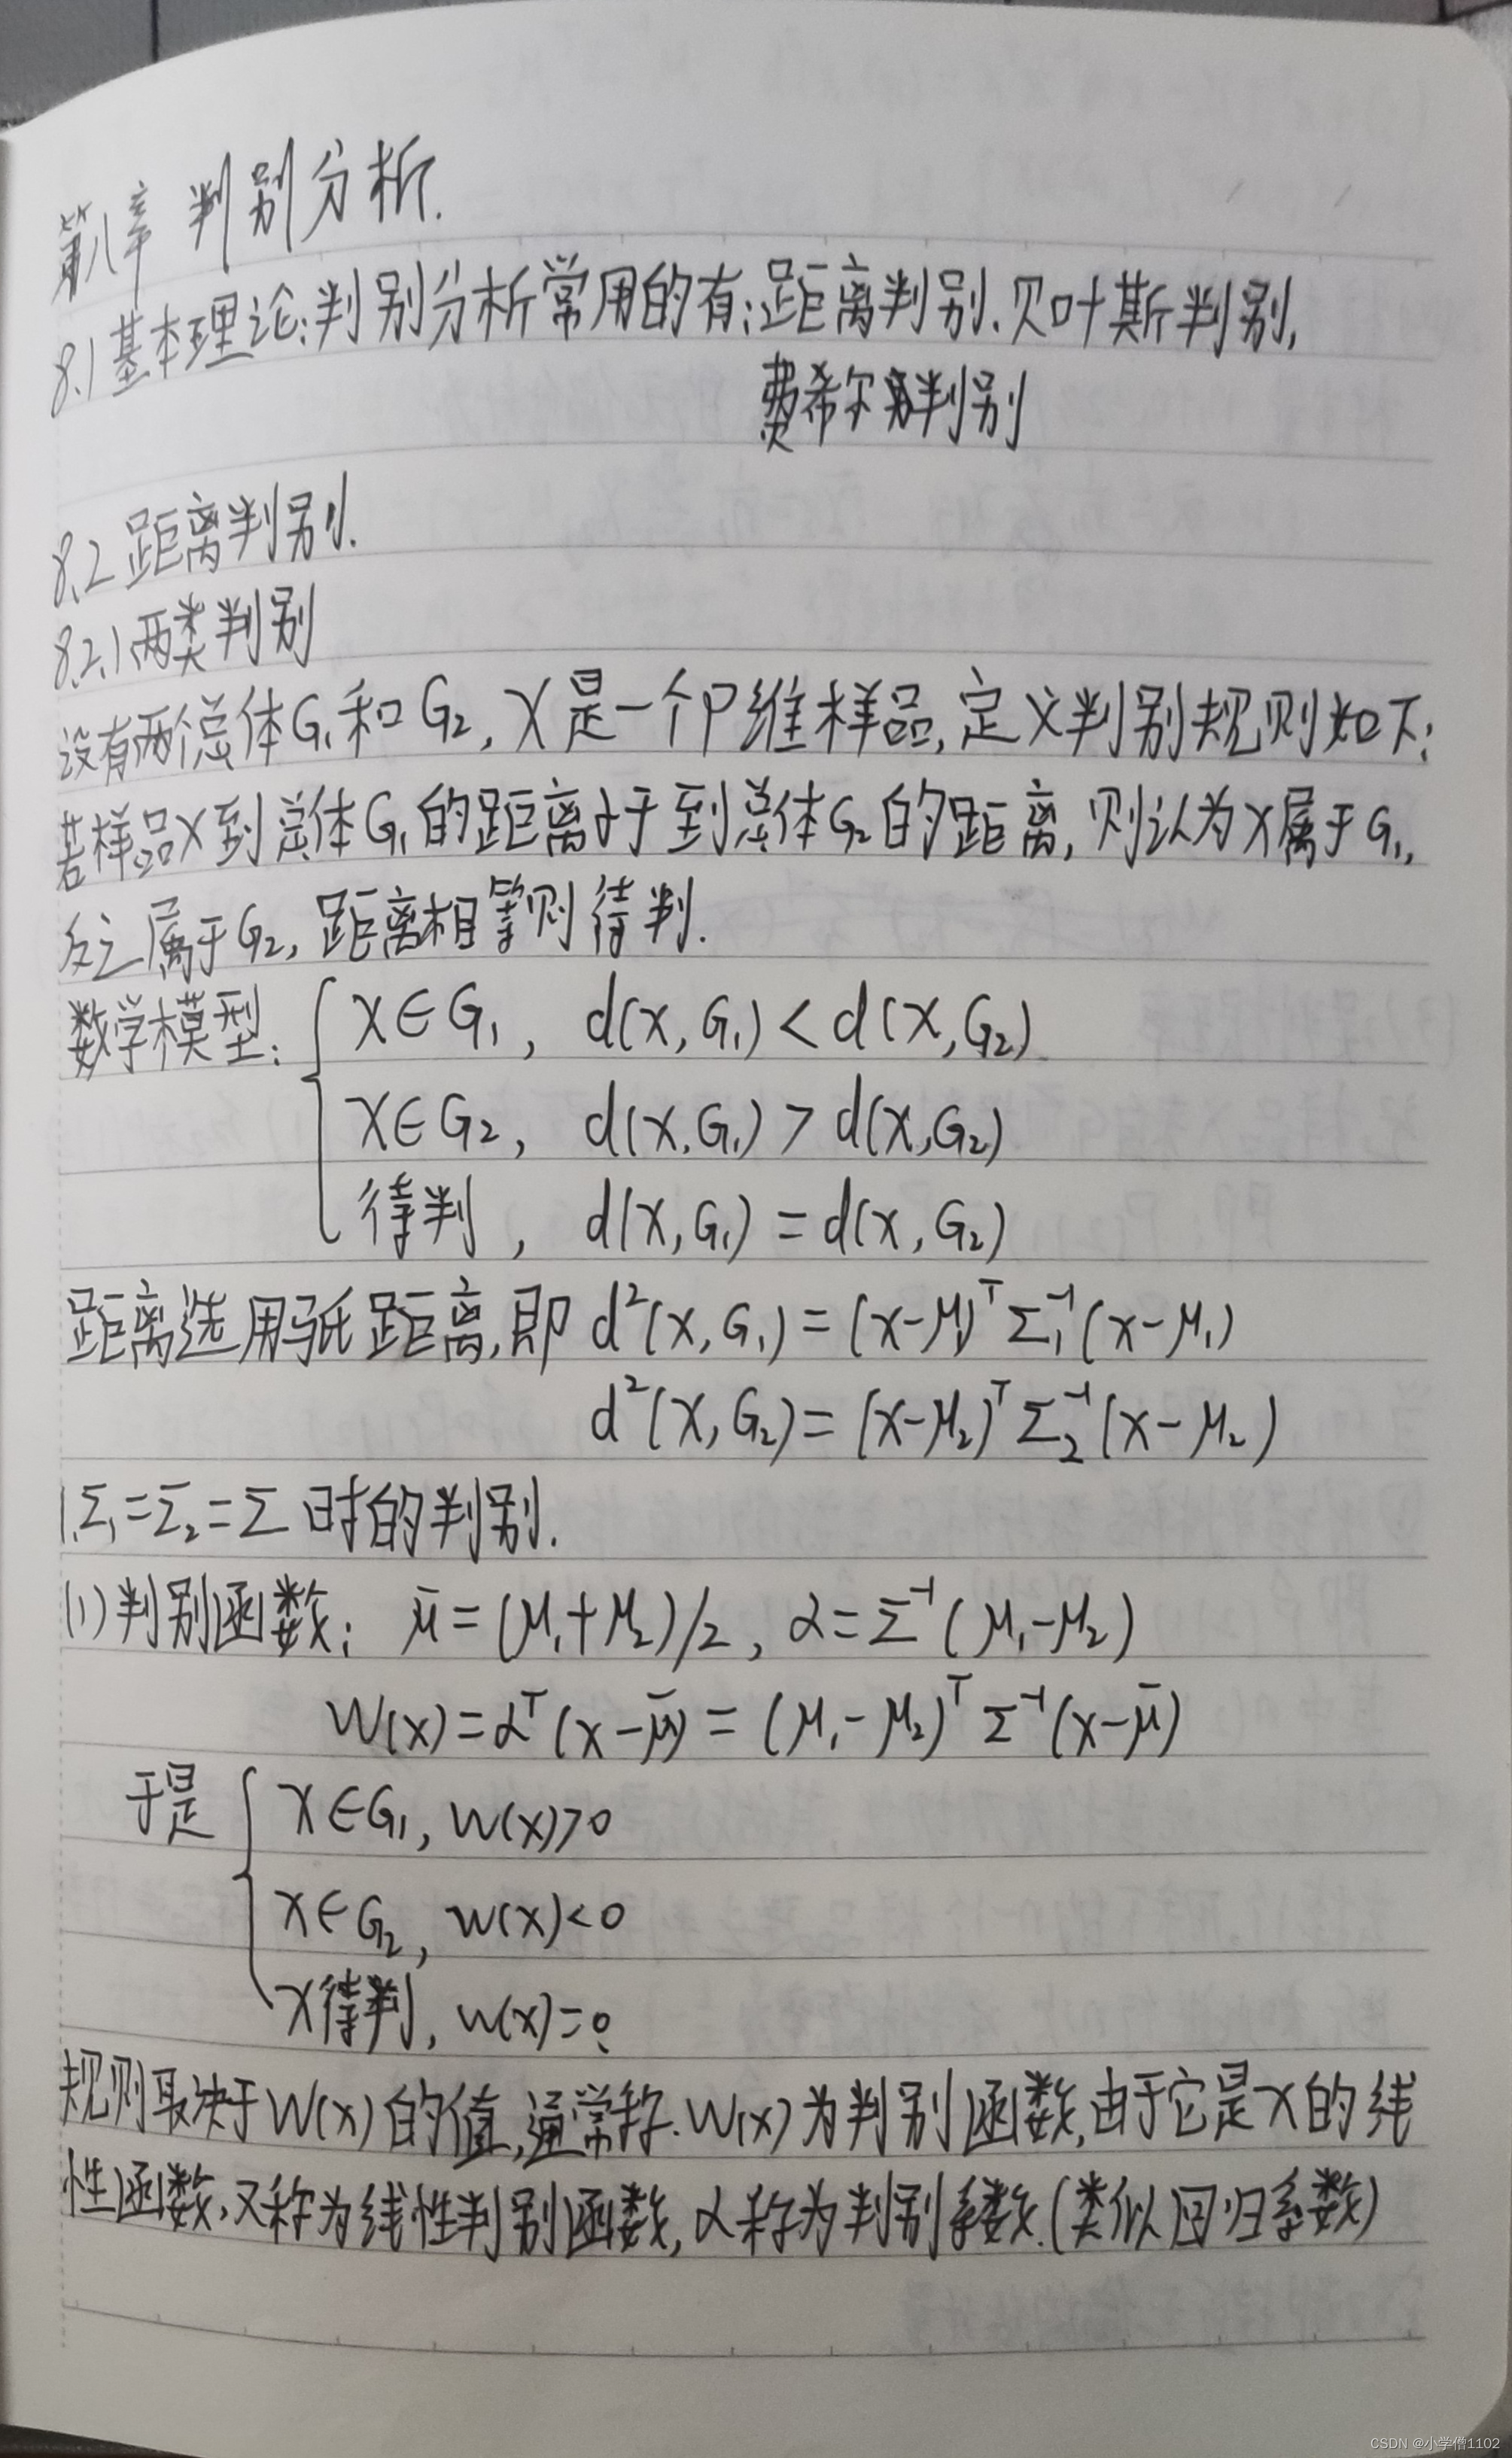 第八章 判别分析.
8.1 基本理论:判别分析常用的有:距离判别.贝叶斯判别,
费希尔判别
8.2 距离判别.
8.2.1 两类判别
设有两个总体G₁和G₂,X是一个P维样品,定义判别规则如下:
若样品X到总体G₁的距离小于到总体G₂的距离,则认为X属于G₁,
反之属于G₂,距离相等则待判.
数学模型: { X∈G₁, d(X,G₁)<d(X,G₂)
X∈G₂, d(X,G₁)>d(X,G₂)
待判, d(X,G₁)=d(X,G₂)
距离选用马氏距离,即 d²(X,G₁)=(X-μ₁)ᵀΣ₁⁻¹(X-μ₁)
d²(X,G₂)=(X-μ₂)ᵀΣ₂⁻¹(X-μ₂)
1.Σ₁=Σ₂=Σ 时的判别.
(1)判别函数: μ̄=(μ₁+μ₂)/2, α=Σ⁻¹(μ₁-μ₂)
W(X)=αᵀ(X-μ̄)=(μ₁-μ₂)ᵀΣ⁻¹(X-μ̄)
于是 { X∈G₁, W(X)>0
X∈G₂, W(X)<0
X待判, W(X)=0.
规则取决于W(X)的值,通常称.W(X)为判别函数,由于它是X的线
性函数,又称为线性判别函数,α称为判别系数.(类似回归系数)
CSDN @小学僧1102